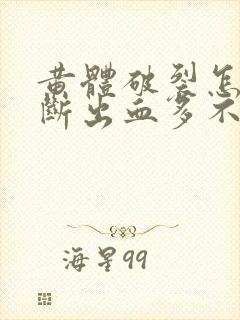 黄體破裂怎
斷出血多不
海星99